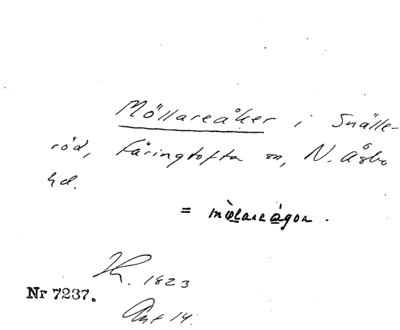 Möllareåker i Snälle-
röd, Färingtofta sn, N. Åsbo
hd.
= mœlareågon.
1823
Nr 7237.
Akt 14.